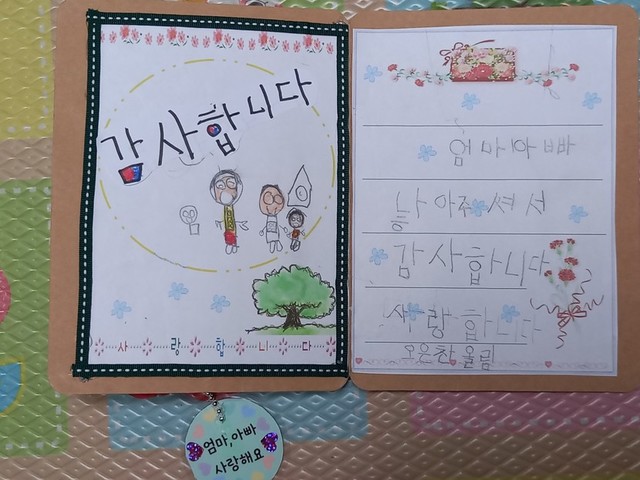 감사합니다
사랑합니다
엄마아빠
낳아주셔서
감사합니다
사랑합니다
오은찬올림
엄마,아빠
사랑해요